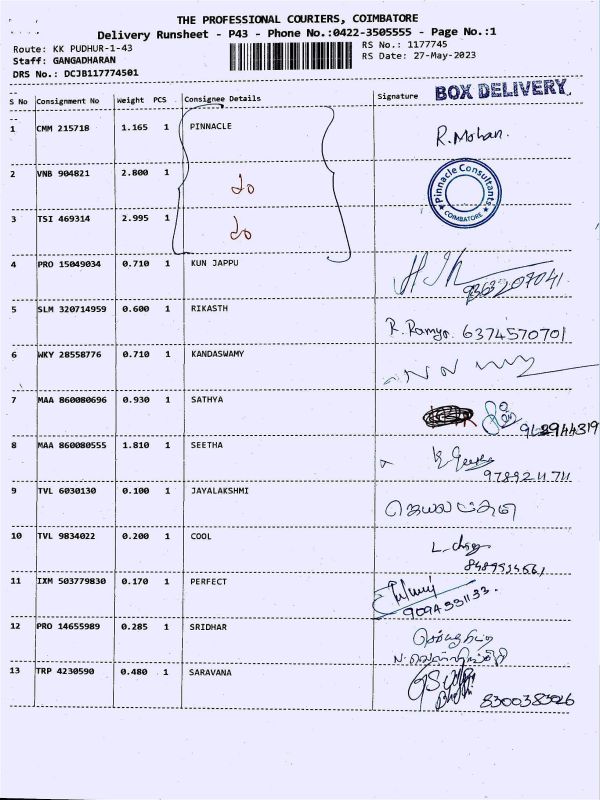 THE PROFESSIONAL COURIERS, COIMBATORE
Delivery Runsheet - P43 - Phone No.:0422-3505555 - Page No.:1
Route: KK PUDHUR-1-43
RS No.: 1177745
Staff: GANGADHARAN
RS Date: 27-May-2023
DRS No.: DCJB117774501
BOX DELIVERY
S No Consignment No Weight PCS Consignee Details Signature
1 CMM 215718 1.165 1 PINNACLE R.Mohan.
2 VNB 904821 2.800 1 do
Pinnacle Consultants
COIMBATORE
3 TSI 469314 2.995 1 do
4 PRO 15049034 0.710 1 KUN JAPPU
9363207041
5 SLM 320714959 0.600 1 RIKASTH R. Ramya. 6374570701
6 WKY 28558776 0.710 1 KANDASWAMY
7 MAA 860080696 0.930 1 SATHYA
8 MAA 860080555 1.810 1 SEETHA
9789211711
9 TVL 6030130 0.100 1 JAYALAKSHMI
10 TVL 9834022 0.200 1 COOL
11 IXM 503779830 0.170 1 PERFECT
12 PRO 14655989 0.285 1 SRIDHAR
13 TRP 4230590 0.480 1 SARAVANA
8300383026